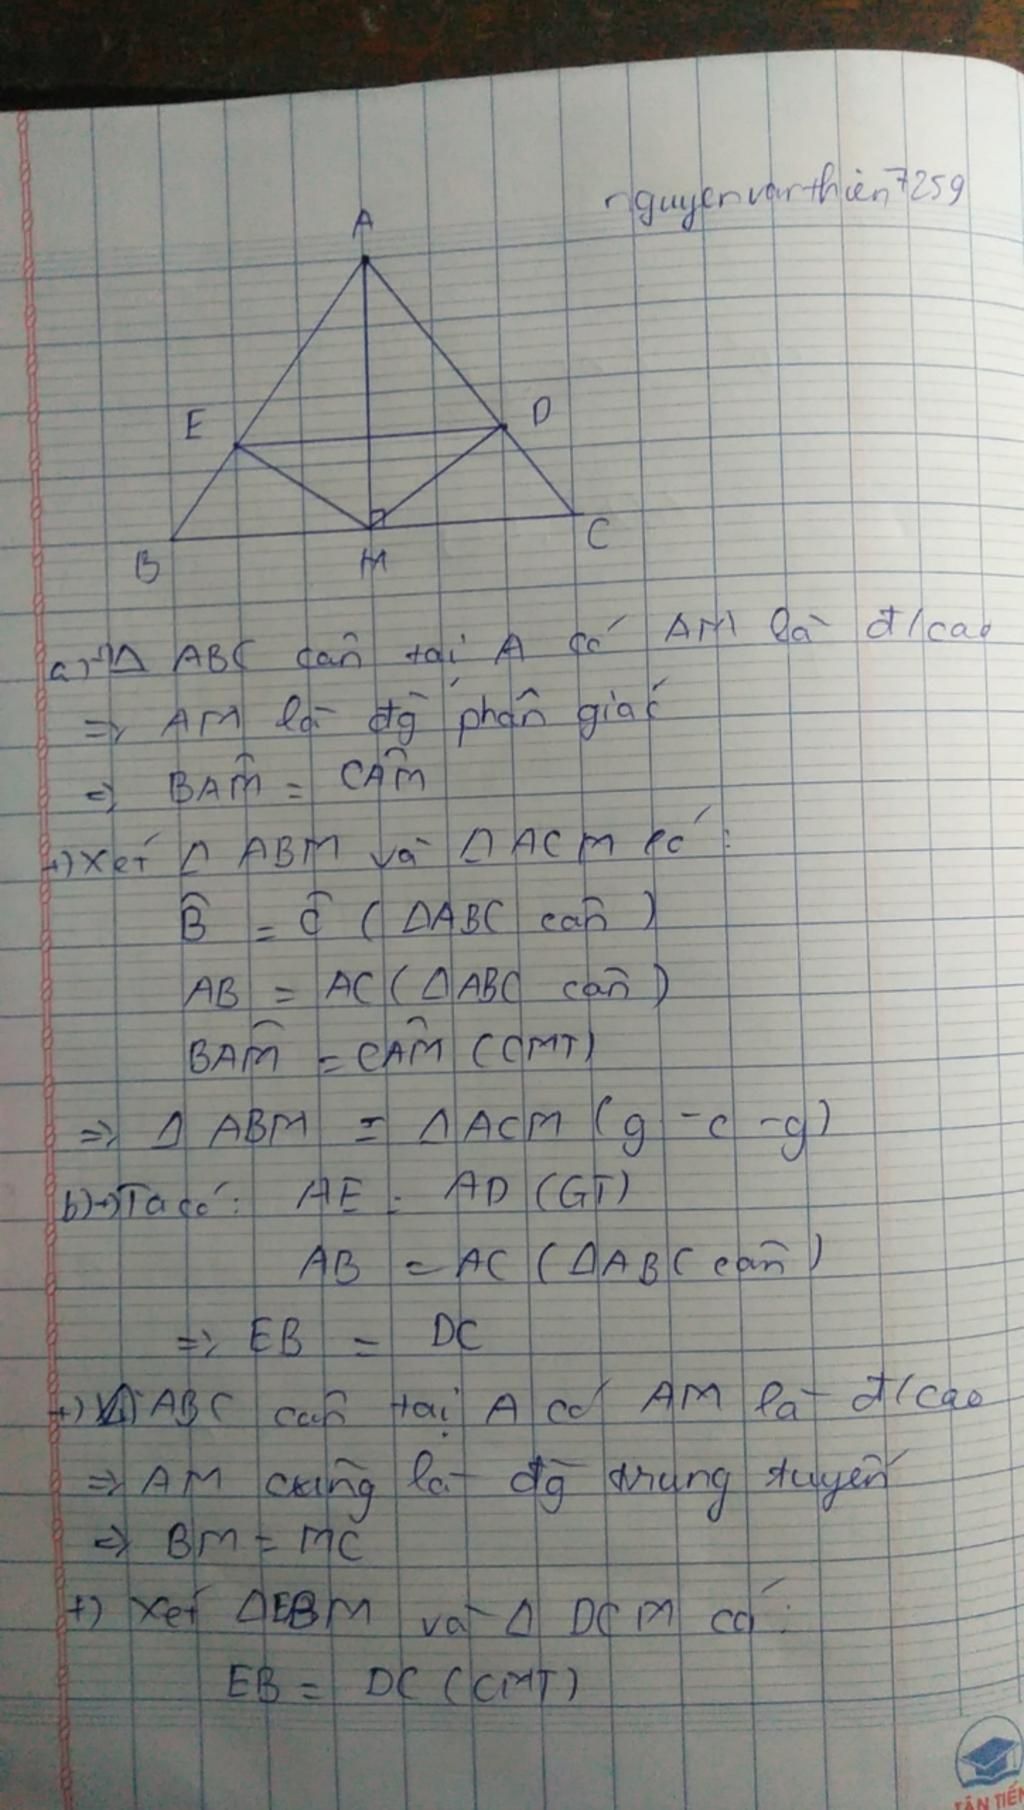 nguyenvanthien7259
A
E
D
B
M
C
a) +) Δ ABC cân tại A có AM là đ/cao
=> AM là đg phân giác
=> BAM̂ = CAM̂
+) Xét Δ ABM và Δ ACM có:
B̂ = Ĉ (ΔABC cân)
AB = AC (ΔABC cân)
BAM̂ = CAM̂ (CMT)
=> Δ ABM = ΔACM (g-c-g)
b) +) Ta có: AE = AD (GT)
AB = AC (ΔABC cân)
=> EB = DC
+) ΔABC cân tại A có AM là đ/cao
=> AM cũng là đg trung tuyến
=> BM = MC
+) Xét ΔEBM và Δ DCM có:
EB = DC (CMT)
TÂN TIẾN